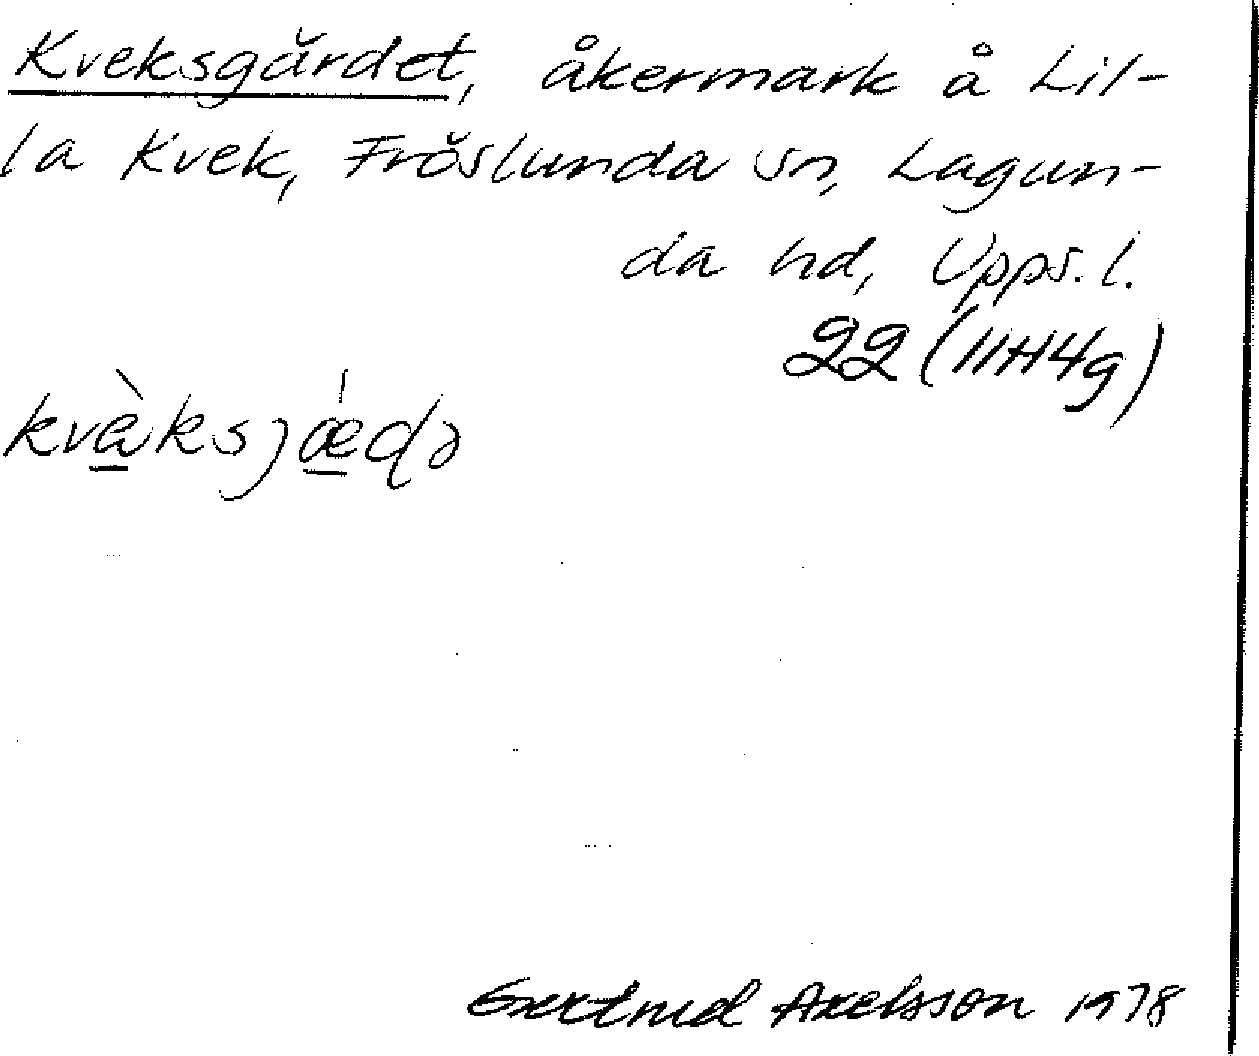 Kveksgärdet, åkermark å Lil-
la Kvek, Fröslunda sn, Lagun-
da hd, Upps. l.
22 (11H4g)
kvàksjǽɖə
Gertrud Axelsson 1978